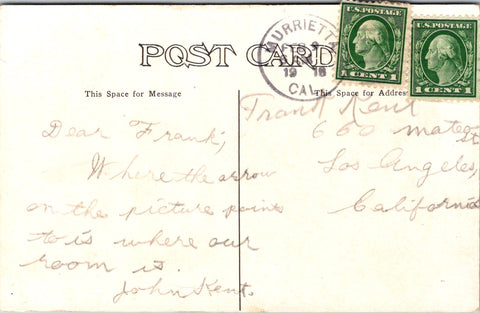 POST CARD
MURRIETTA
19 18
CAL.
U.S. POSTAGE
1 CENT 1
U.S. POSTAGE
1 CENT 1
This Space for Message
This Space for Address
Frank Kent
660 mateo
st
Los Angeles,
California
Dear Frank,
Where the arrow
on the picture points
to is where our
room is.
John Kent.